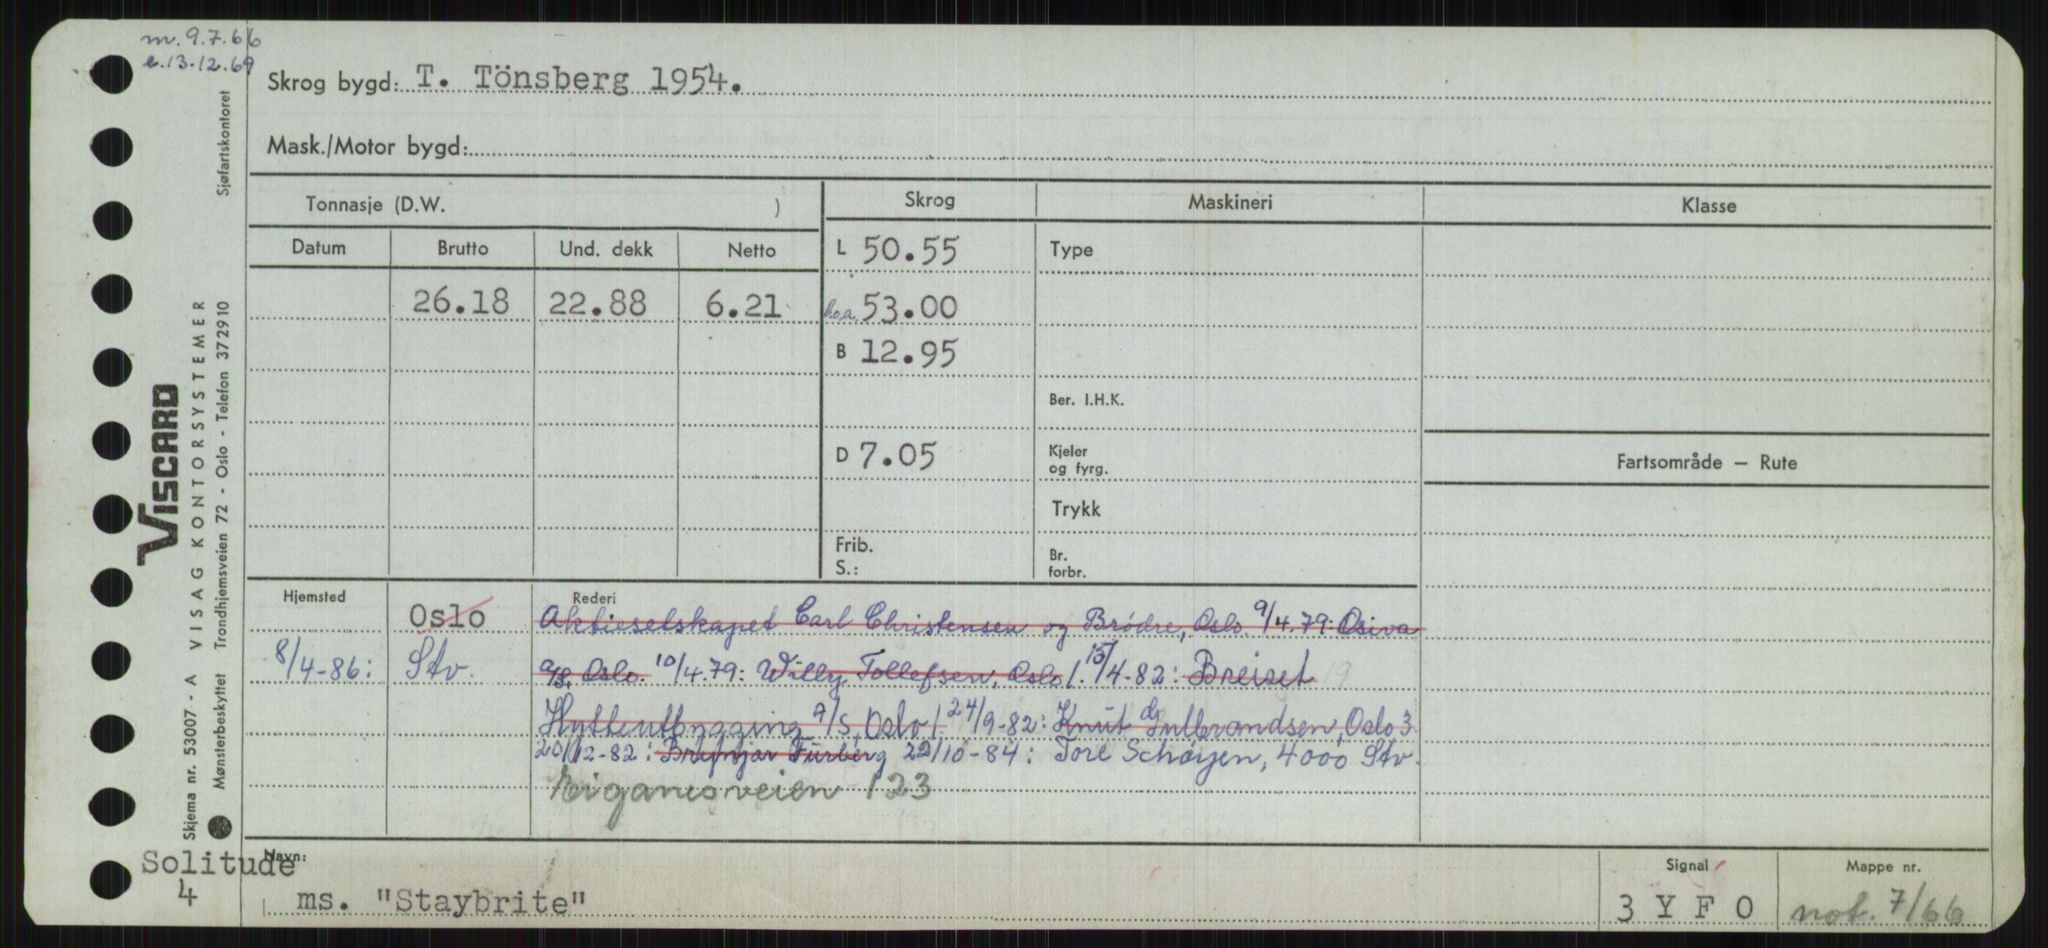 m. 9.7.66
e. 13.12.69
Skrog bygd: T. Tönsberg 1954.
Mask./Motor bygd:
Tonnasje (D.W. )
Skrog
Maskineri
Klasse
Datum
Brutto
Und. dekk
Netto
L 50.55
Type
26.18
22.88
6.21
l.o.a. 53.00
B 12.95
Ber. I.H.K.
D 7.05
Kjeler
og fyrg.
Fartsområde – Rute
Trykk
Frib.
S.:
Br.
forbr.
Hjemsted
Oslo
Rederi
Aktieselskapet Carl Christensen og Brödre, Oslo. 9/4.79: Osiva
8/4-86: Stv.
A/S, Oslo. 10/4.79: Willy Tollefsen, Oslo/. 15/4-82: Breiset
Hytteutbygging A/S, Oslo/. 24/9-82: Knut Gulbrandsen, Oslo 3
20/12-82: Furberg 22/10-84: Tore Schøyen, 4000 Stv.
Eiganesveien 123
Solitude
4
Navn:
ms. "Staybrite"
Signal
3 Y F O
Mappe nr.
not. 7/66
Sjøfartskontoret
VISCARD
VISAG KONTORSYSTEMER
Trondhjemsveien 72 - Oslo - Telefon 372910
Skjema nr. 53007 - A
Mønsterbeskyttet